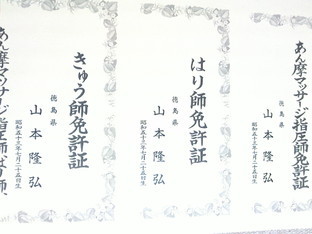 あん摩マッサージ指圧師免許証
徳島県
山本隆弘
昭和五十三年七月二十五日生
はり師免許証
徳島県
山本隆弘
昭和五十三年七月二十五日生
きゅう師免許証
徳島県
山本隆弘
昭和五十三年七月二十五日生
あん摩マッサージ指圧師、はり師、